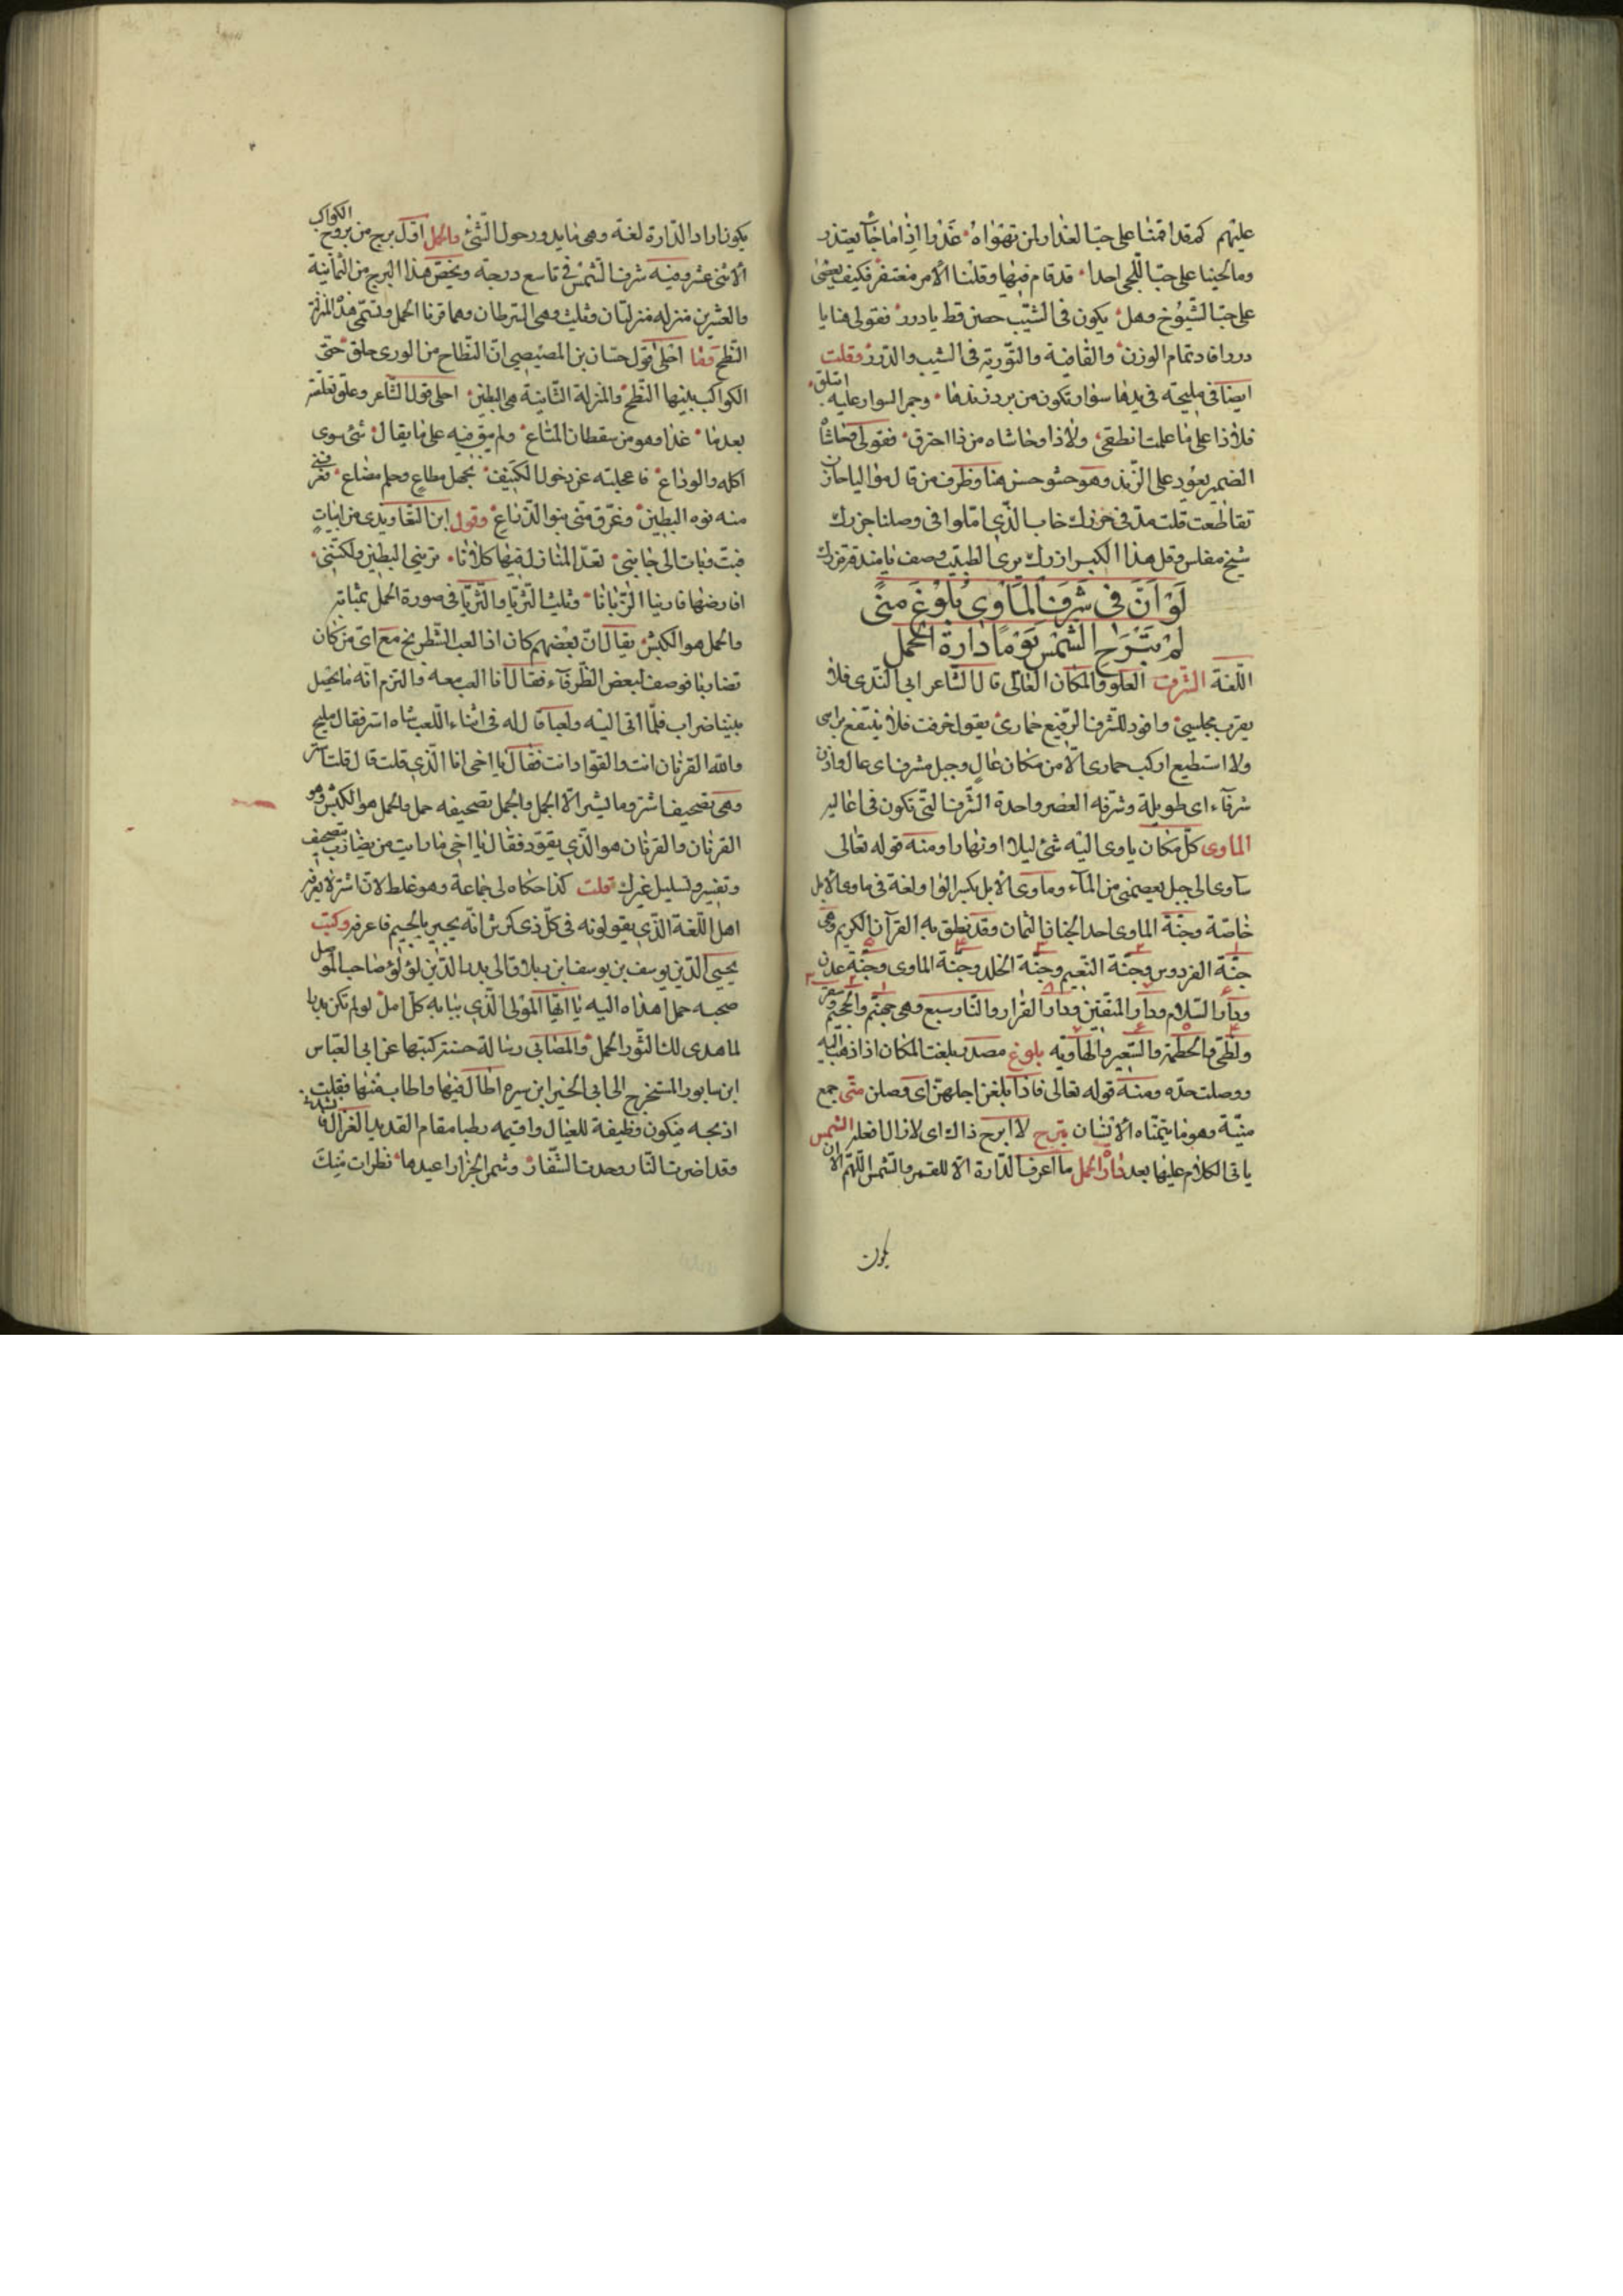 عليهم كم قد اقمنا على حبّ العذار لمن تهواه عَذْوا اِذا ما جآ يعتذر
وما لحينا على حبّ اللّحى احدا قد قام فيها وقلنا الأمر مغتفر فكيف
على حبّ الشّيوخ وهل يكون فى الشّيب حصن قط يا درر فقولى هنا يا
درر افاد تمام الوزن والقافية والتّورية فى الشيب والدّرر وقلت
ايضا فى مليحة فى يدها سوار وتكون من بردزندها وجمر السوار عليه
فلا ذا على ما علمت انطفى ولا ذا وحاشاه من ذا احترق فقولى وحاشاه
الضمير يعود على الزّند وهو حشو حسن هنا وظرف من قال مواليا
تقاطعت قلت مدّ فى خاب الّذى امّلوا فى وصلنا
شيخ مفلس وقل هذا الكبير يرى الطبيب وصف
لَوْ اَنَّ فى شَرَفِ الْمَأوى بُلُوغَ مُنىً
لَمْ تَبْرَحِ الشَّمْسُ يَوْمًا دارَةَ الحَمَلِ
اللّغة الشرف العلوّ والمكان العالى قال الشّاعر اتى النّدى فلا
يقرب مجلسى واقود للشّرف الرّفيع حمارى يقول خرفت فلا ينتفع برايى
ولا استطيع اركب حمارى الّا من مكان عال وجبل مشرف اى عال واذن
شرفآء اى طويلة وشرفه القصر واحدة الشّرف الّتى تكون فى اعاليه
الماوى كلّ مكان ياوى اليه شئ ليلا او نهارا ومنه قوله تعالى
سآوى الى جبل يعصمنى من المآء وماوى الابل بكسر الواو لغة فى ماوى الابل
خاصّة وجنّة الماوى احد الجنان الثمان وقد نطق به القرآن الكريم وهى
جنّة الفردوس وجنّة النّعيم وجنّة الخلد وجنّة الماوى وجنّة عدن
ودار السّلام ودار المتّقين ودار القرار والنّار سبع وهى جهنّم والجحيم وسقر
ولظى والحطمة والسّعير والهاوية بلوغ مصدر بلغت المكان اذا ذهبت اليه
ووصلت حدّه ومنه قوله تعالى فاذا بلغن اجلهنّ اى وصلن منى جمع
منيّة وهو ما يتمنّاه الانسان تبرح لا ابرح ذاك اى لا زال افعله الشّمس
ياتى الكلام عليها بعد دارة الحمل ما اعرف الدّارة الّا للقمر والشّمس اللّهمّ الّا ان
يكون
يكون اراد الدّارة لغة وهى ما يدور حول الشّئ والحمل اوّل برج من بروج الكواكب
الاثنى عشر وفيه شرف الشّمس فى تاسع درجة ويخصّ هذا البرج من الثمانية
والعشرين منزله منزلتان وثلث وهى الشرطان وهما قرنا الحمل وتسمّى هذه المنزلة
النّطح وما احلى قول حسّان بن المصيصى انّ النّطاح من الورى خلق حتى
الكواكب بينها النّطح والمنزلة الثّانية هى البطين احلى قول الشّاعر وعلق تعلقته
بعد ما غدا وهو من سقطان المتاع ولم يبق فيه على ما يقال شئ سوى
اكله والوداع فاعجلته عن دخول الكنيف بجهل مطاع وحلم مضاع
منه نوء البطين وغرّق منّى بنوء الذّراع وقول ابن التّعاويذى من ابيات
فبتّ وبات الى جانبى نعدّ المنازل فيها كلانا ترينى البطين ولكنّنى
اعارضها فارنيا الزّبانا وثلث الثّريّا والثّريّا فى صورة الحمل بمثابة
والحمل هو الكبش يقال انّ بعضهم كان اذا لعب الشّطرنج مع اىّ من كان
تضاربا فوصف لبعض الظّرفآء فقال انا العب معه والتزم انّه ما يحصل
بيننا ضراب فلمّا اتى اليه ولعبا قال له فى اثناء اللّعب شاه استر فقال مليح
والله القرنان انت والقوّاد انت فقال يا اخى انا الّذى قلت قال قلت استر
وهى تصحيف اشتر وما يشتر الّا الجمل والجمل تصحيفه حمل والحمل هو الكبش وهو
القرنان والقرنان هو الّذى يقود فقال يا اخى ما رايت من يضارب بتصحيف
وتفسير وتسليل غيرك قلت كذا حكاه لى جماعة وهو غلط لان اشتر لا يعرفه
اهل اللّغة الّذى يقولونه فى كلّ ذى كرش انّه يجترّ بالجيم فاعرفه وكتب
يحيى الدّين يوسف بن يوسف ابن زبلاق الى بدر الدّين لؤلؤ صاحب الموصل
صحبه حمل اهداه اليه يا ايّها المولى الّذى ببابه كلّ امل لو لم تكن بدرا
لما هدى لك الثّور الحمل والصّابى رسالة حسنة كتبها عن ابى العبّاس
ابن سابور المستخرج الى ابى الخير ابن سبره اطال فيها واطاب منها فقلت
اذبحه فيكون وظيفة للعيال واقيمه رطبا مقام القديد الغزال
وقد اضرمت النّار وحدت الشّفار وشمر الجزّار اعيدها نظرات منك